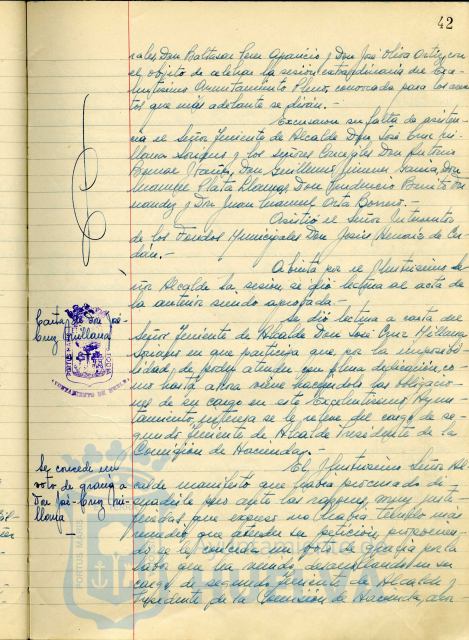 42
rales Don Baltasar Pern Aparicio y Don José Oliva Ortiz, con
el objeto de celebrar la sesión extraordinaria de Exce-
lentísimo Ayuntamiento Pleno, convocada para los asun-
tos que más adelante se dirán.-
Excusaron su falta de asisten-
cia el Señor Teniente de Alcalde Don José Cruz Mi-
llana y los Señores Concejales Don Antonio
Don Guillermo Jimenez Don
Manuel Plata Don Fundencio Benito
y Don Juan Manuel Orta Borrero.-
Asistió el Señor Interventor
de los Fondos Municipales Don Jesús de Ce-
Abierta por el Ilustrísimo Se-
ñor Alcalde la sesión se dió lectura al acta de
la anterior siendo aprobada.-
Carta de Don Jo-
sé Cruz Millana
Se dió lectura a carta del
Señor Teniente de Alcalde Don José Cruz Millana
en que participa que por la imposibi-
lidad de poder atender con plena dedicación, co-
mo hasta ahora viene haciéndolo las obligacio-
nes de su cargo en este Excelentísimo Ayun-
tamiento, interesa se le releve del cargo de se-
gundo Teniente de Alcalde Presidente de la
Comisión de Haciendas.-
AYUNTAMIENTO DE HUELVA
Se concede un
voto de gracia a
Don José Cruz Mi-
llana
El Ilustrísimo Señor Al-
calde manifestó que había procurado di-
suadirle pero ante las razones muy justi-
ficadas que expuso no había tenido más
remedio que atender su petición, proponien-
do se le conceda un voto de gracia por la
labor que ha venido desarrollando en su
cargo de segundo Teniente de Alcalde y
Presidente de la Comisión de Hacienda, abo-